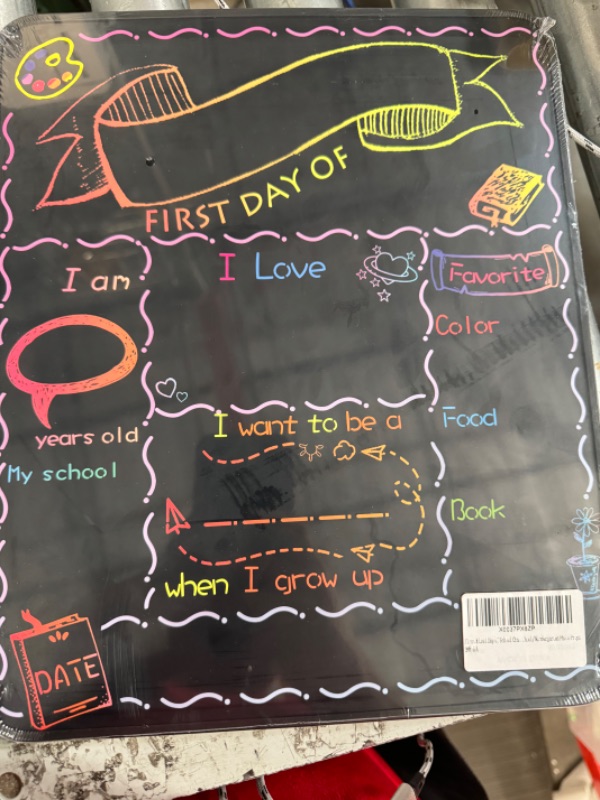 FIRST DAY OF
I am
I Love
Favorite
Color
years old
I want to be a
Food
My school
Book
when I grow up
DATE